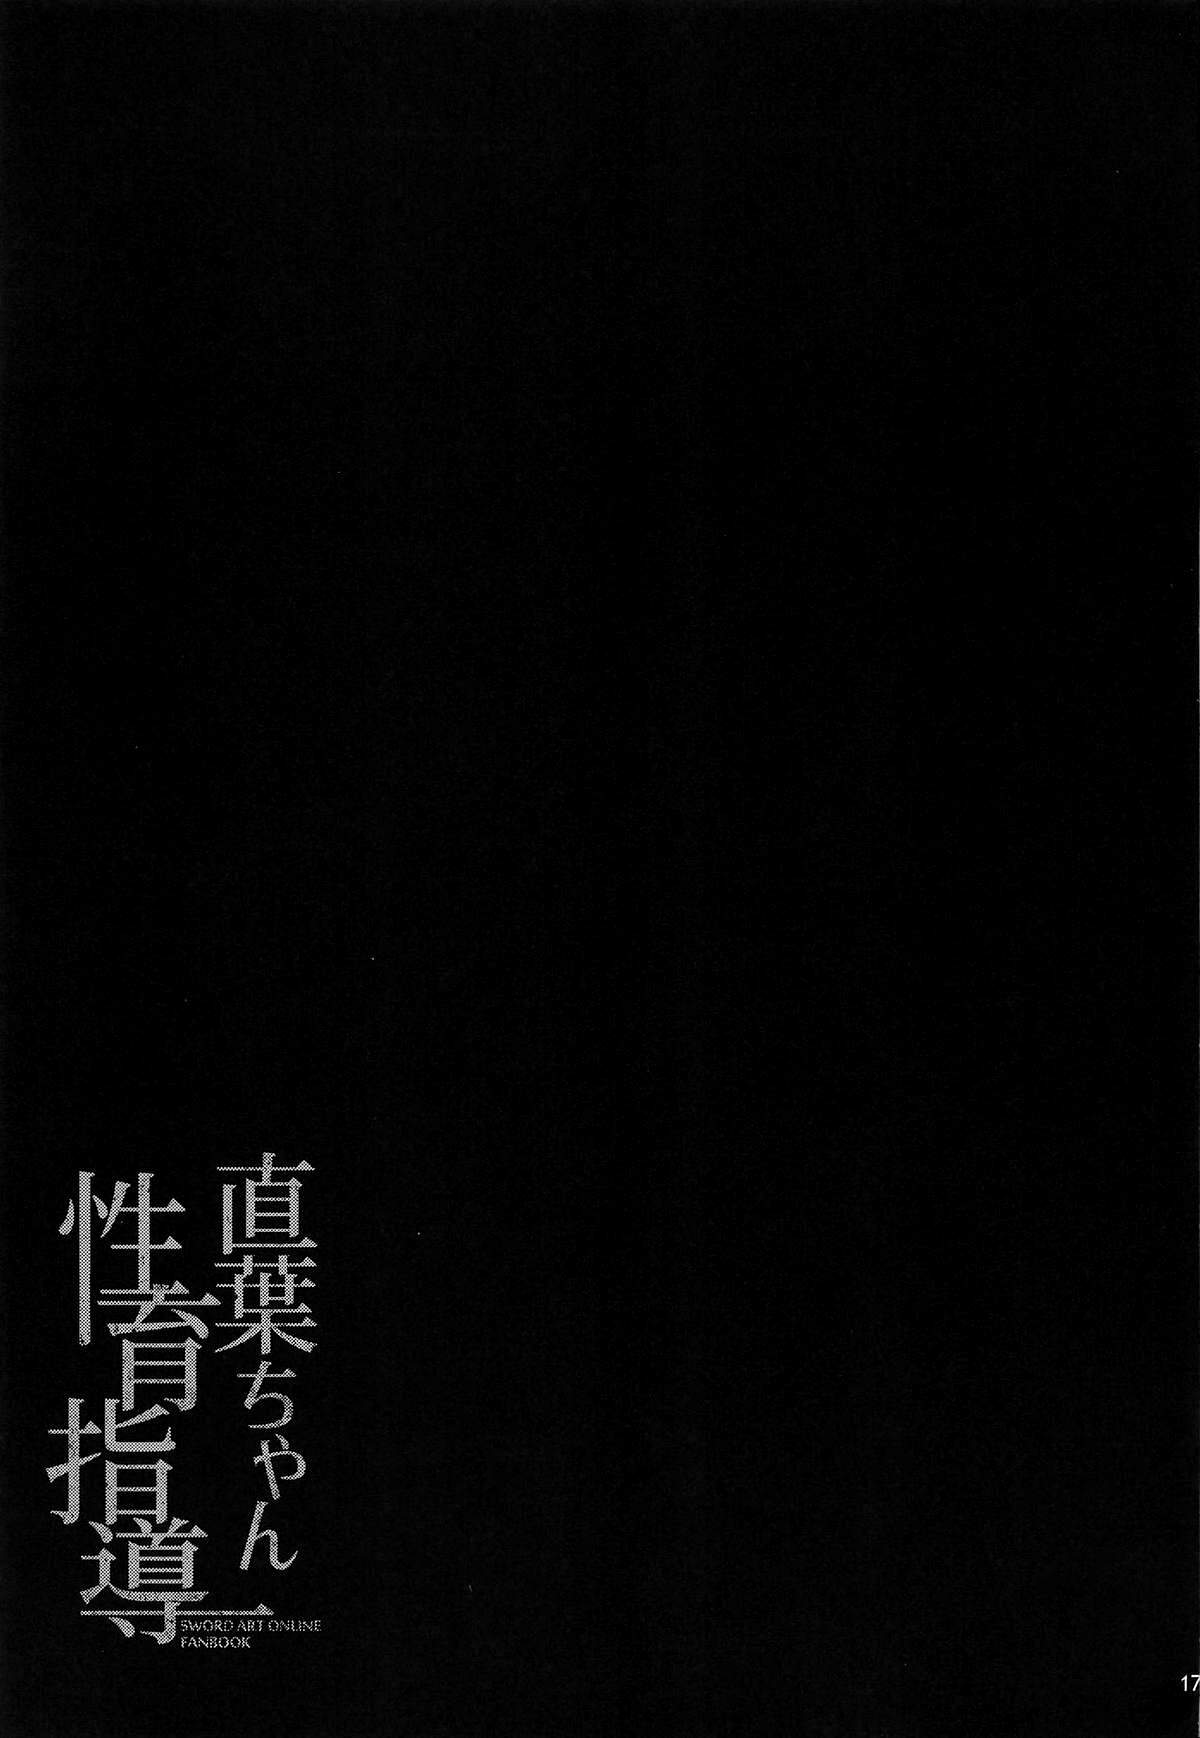 直葉ちゃん
性育指導
SWORD ART ONLINE
FANBOOK
17